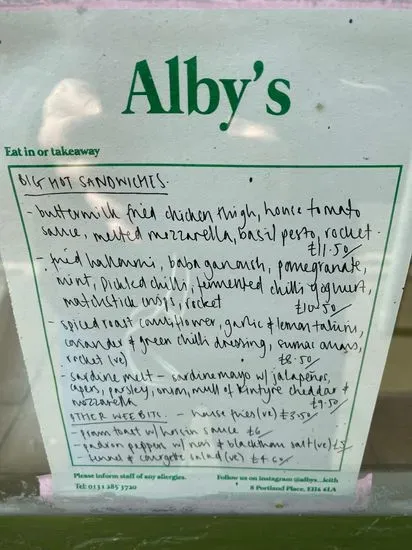 Alby's
Eat in or takeaway
BIG HOT SANDWICHES
- buttermilk fried chicken thigh, house tomato
sauce, melted mozzarella, basil pesto, rocket.
£11.50/
- fried halloumi, baba ganoush, pomegranate,
mint, pickled chilli, fermented chilli yoghurt,
matchstick crisps, rocket £10.50/
- spiced roast cauliflower, garlic & lemon tahini,
coriander & green chilli dressing, sumac onions,
rocket (ve) £8.50/
- sardine melt - sardine mayo w/ jalapeños,
capers, parsley, onion, mull of kintyre cheddar &
mozzarella £9.50/
OTHER WEE BITS. - house fries (ve) £3.50/
- prawn toast w/ hoisin sauce £6/
- padron peppers w/ & blackthorn salt (ve) £5
- fennel & courgette salad (ve) £4.50/
Please inform staff of any allergies.
Tel: 0131 285 3720
Follow us on instagram @albys_leith
8 Portland Place, EH6 6LA